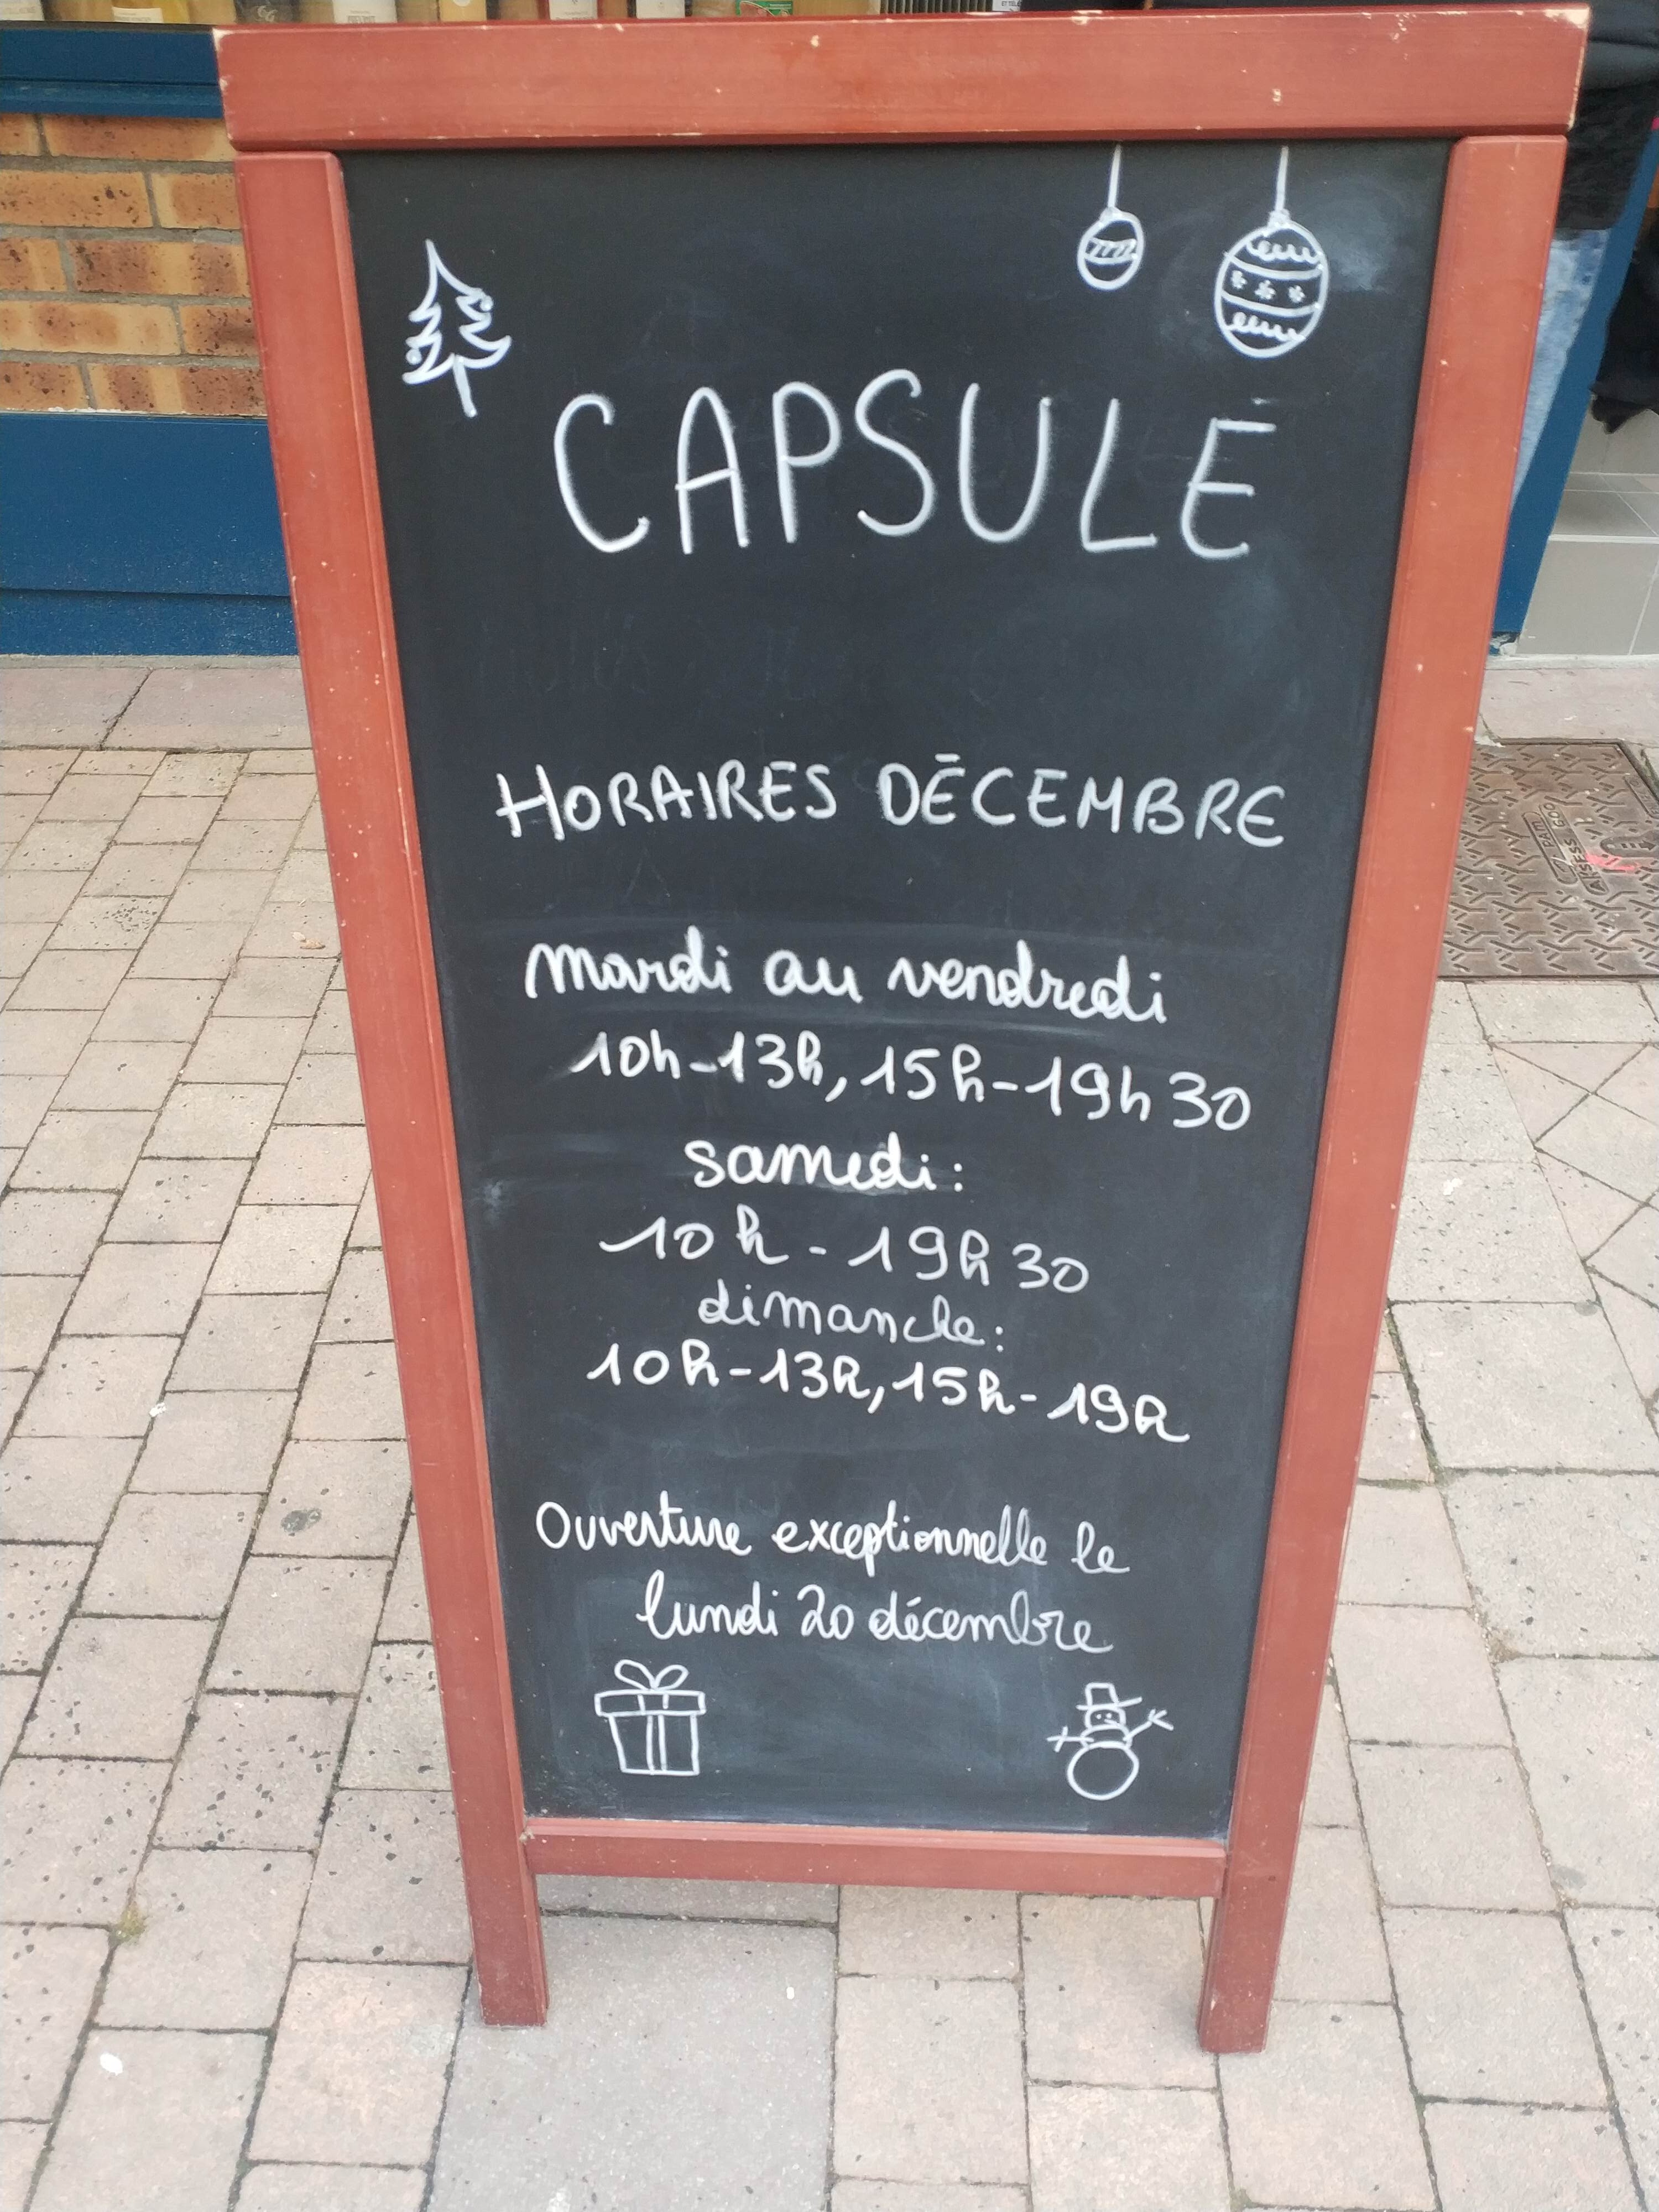 CAPSULE
HORAIRES DÉCEMBRE
mardi au vendredi
10h-13h, 15h-19h30
samedi:
10h-19h30
dimanche:
10h-13h, 15h-19h
Ouverture exceptionnelle le
lundi 20 décembre
PAM
AKSESS 60